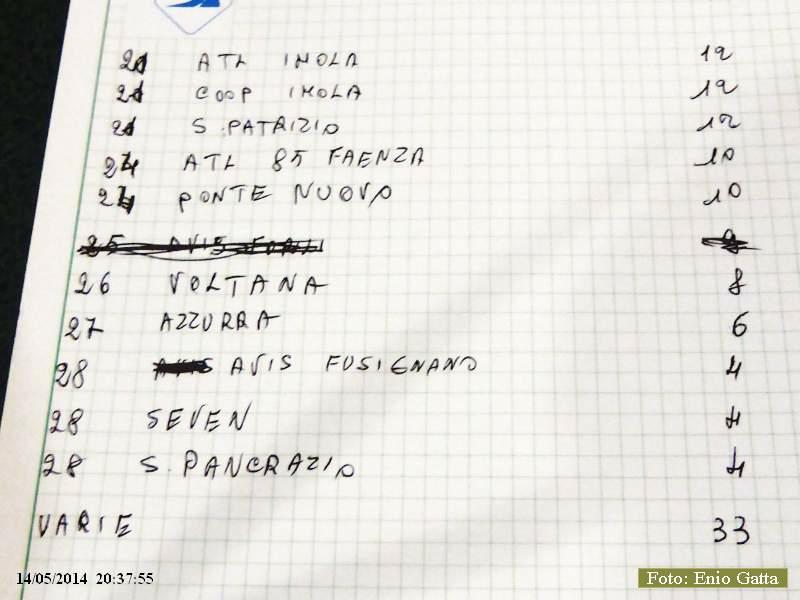 21 ATL IMOLA 12
21 COOP IMOLA 12
21 S. PATRIZIO 12
24 ATL 85 FAENZA 10
24 PONTE NUOVO 10
25 AVIS FORLI 9
26 VOLTANA 8
27 AZZURRA 6
28 AVIS AVIS FUSIGNANO 4
28 SEVEN 4
28 S. PANCRAZIO 4
VARIE 33
14/05/2014 20:37:55
Foto: Enio Gatta